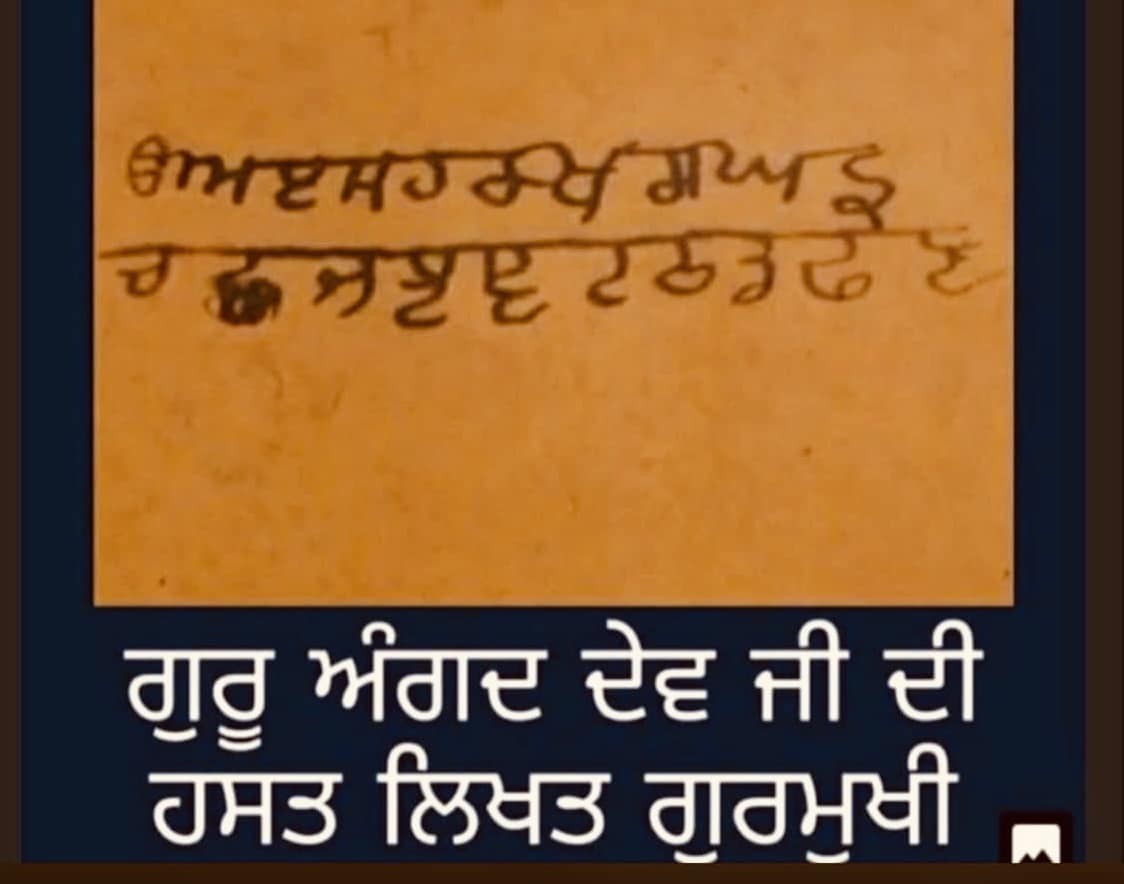 ੳ ਅ ੲ ਸ ਹ ਕ ਖ ਗ ਘ ਙ
ਚ ਛ ਜ ਝ ਞ ਟ ਠ ਡ ਢ ਣ
ਗੁਰੂ ਅੰਗਦ ਦੇਵ ਜੀ ਦੀ
ਹਸਤ ਲਿਖਤ ਗੁਰਮੁਖੀ